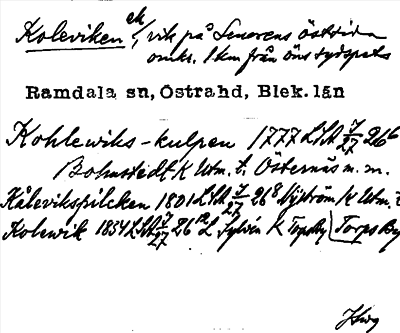 Koleviken ek, vik på Senorens östsida
omkr. 1 km från öns sydspets
Ramdala sn, Östrahd, Blek. län
Kohlewiks-kulpen 1777 LStA J/27 26 6
Bohnstedt K Utm. t. Östernäs m.m.
Kålevikspilcken 1801 LStA J/27 26 8 Nyström K Utm. t
Kolewik 1854 LStA J/27 26 12 L Sylvén K Torps By